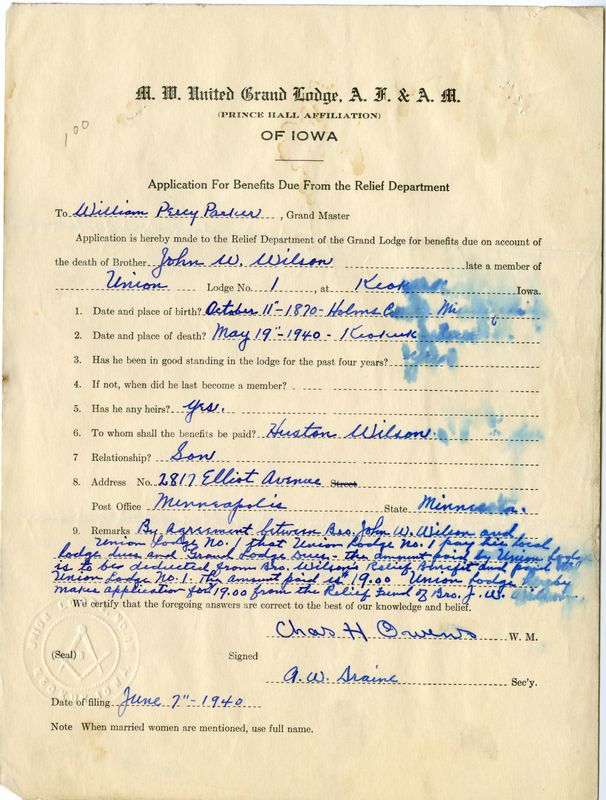 100
M. W. United Grand Lodge, A. F. & A. M.
(PRINCE HALL AFFILIATION)
OF IOWA
Application For Benefits Due From the Relief Department
To William Percy Parker, Grand Master
Application is hereby made to the Relief Department of the Grand Lodge for benefits due on account of
the death of Brother John W. Wilson late a member of
Union Lodge No. 1, at Keokuk Iowa.
1. Date and place of birth? October 11"-1870-Holms Co
2. Date and place of death? May 19"-1940 - Keokuk
3. Has he been in good standing in the lodge for the past four years?
4. If not, when did he last become a member?
5. Has he any heirs? Yes.
6. To whom shall the benefits be paid? Huston Wilson
7 Relationship? Son
8. Address No. 2817 Elliot Avenue Street
Post Office Minneapolis State Minnesota.
9. Remarks By Agreement between Bro. John W. Wilson and
Union Lodge No. 1 that Union Lodge No. 1 pay his local
lodge dues and Grand Lodge Dues - the amount paid by Union Lodge
is to be deducted from Bro. Wilson's Relief Benefit and paid to
Union Lodge No. 1. The amount paid is 19.00 Union Lodge
makes application for 19.00 from the Relief Fund of Bro. J. W. Wilson.
We certify that the foregoing answers are correct to the best of our knowledge and belief.
Chas H Owens W. M.
(Seal) Signed
A. W. Draine Sec'y.
Date of filing June 7"-1940
Note When married women are mentioned, use full name.